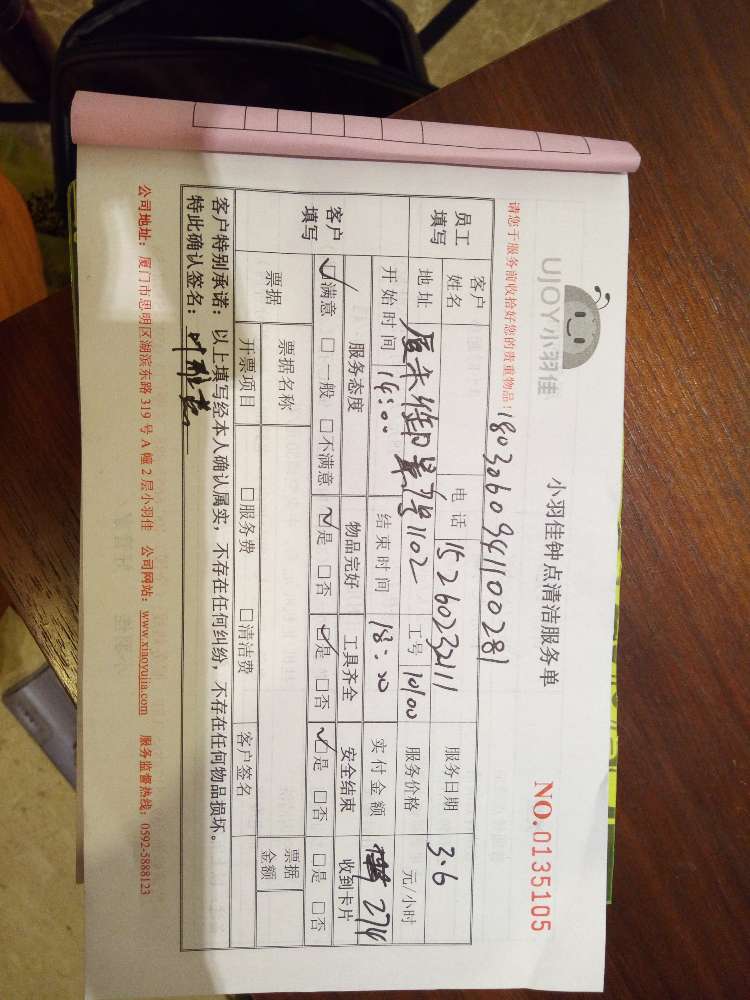 UJOY小羽佳
小羽佳钟点清洁服务单
NO.0135105
请您于服务前收拾好您的贵重物品！
1803060941100281
员工填写
客户姓名
电话 15260232111
服务日期 3.6
地址 1102
工号 10100
服务价格 元/小时
开始时间 14:00
结束时间 18:00
实付金额 274
客户填写
服务态度 物品完好 工具齐全 安全结束 收到卡片
☑满意 □一般 □不满意 ☑是 □否 ☑是 □否 ☑是 □否 □是 □否
票据
票据名称
票据金额
开票项目 □服务费 □清洁费 客户签名
客户特别承诺：以上填写经本人确认属实，不存在任何纠纷，不存在任何物品损坏。
特此确认签名：
公司地址：厦门市思明区湖滨东路 319 号 A 幢 2 层小羽佳 公司网站：www.xiaoyujia.com 服务监督热线：0592-5888123